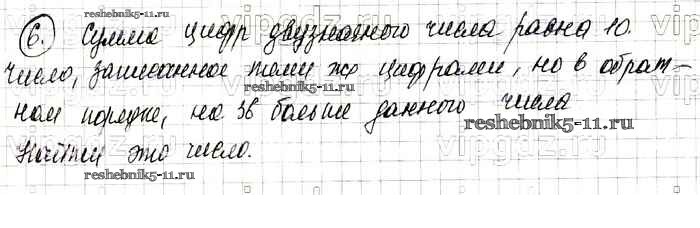 reshebnik5-11.ru
6. Сумма цифр двузначного числа равна 10.
Число, записанное теми же цифрами, но в обрат-
ном порядке, на 36 больше данного числа
reshebnik5-11.ru
Найти это число.
reshebnik5-11.ru